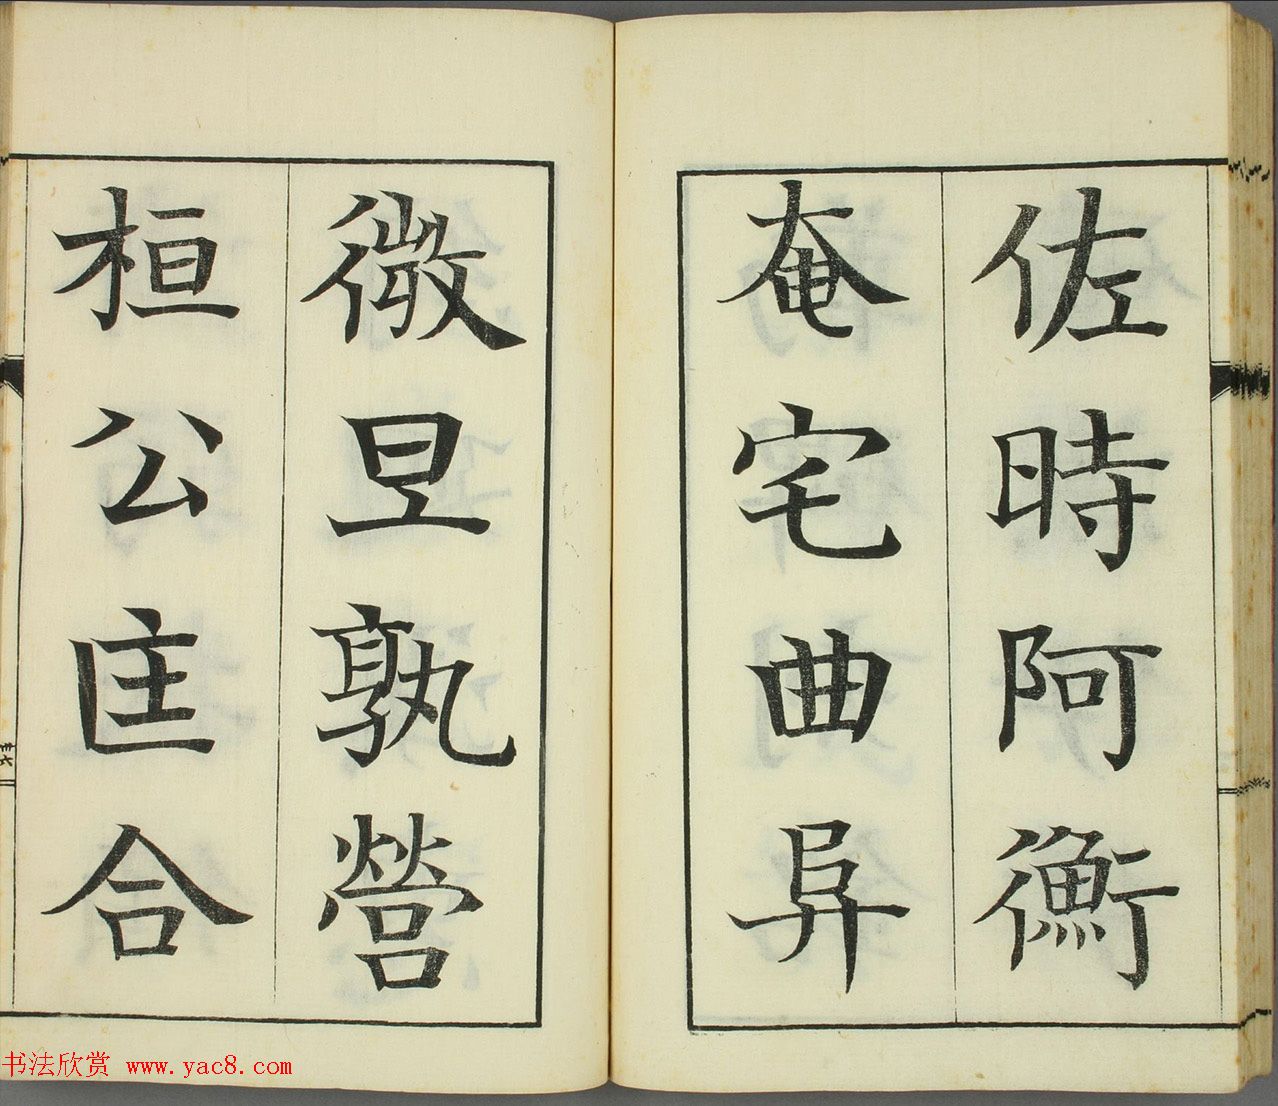 佐時阿衡
奄宅曲阜
微旦孰營
桓公匡合
书法欣赏 www.yac8.com